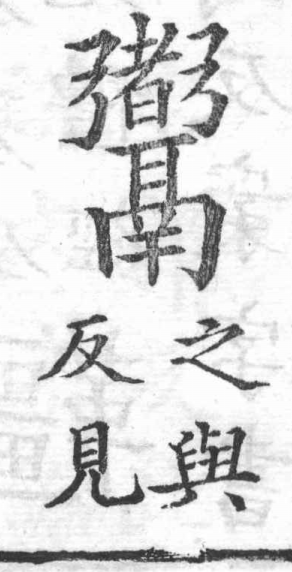 䰞
之與
反見